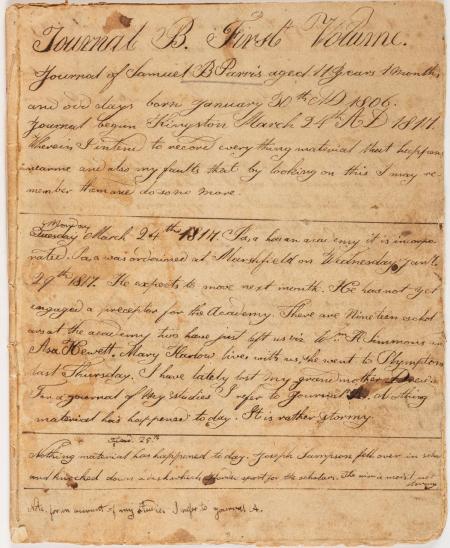 Journal B. First Volume.
Journal of Samuel B Parris aged 11 years 1 months
and odd days born January 30th AD 1806.
Journal begun Kingston March 24th AD 1817.
Wherein I intend to record every thing material that happens
and also my faults that by looking on this I may re-
member them and do so no more.
Monday
Tuesday March 24th 1817. Pa has an academy it is incorpo-
rated. Pa was ordained at Marshfield on Wednesday
29th 1817. He expects to move next month. He has not yet
engaged a preceptor for the Academy. There are Nineteen schol-
ars at the academy two have just left us viz Wm R Simmons
Asa Hewett. Mary Harlow lives with us she went to Plympton
last Thursday. I have lately lost my grandmother
For a journal of my studies I refer to Journal A. Nothing
material has happened to day. It is rather stormy.
25th
Nothing material has happened to day. Joseph Sampson fell over in
and knocked down a which sport for the scholars.
Note, for an account of my studies I refer to journal A.